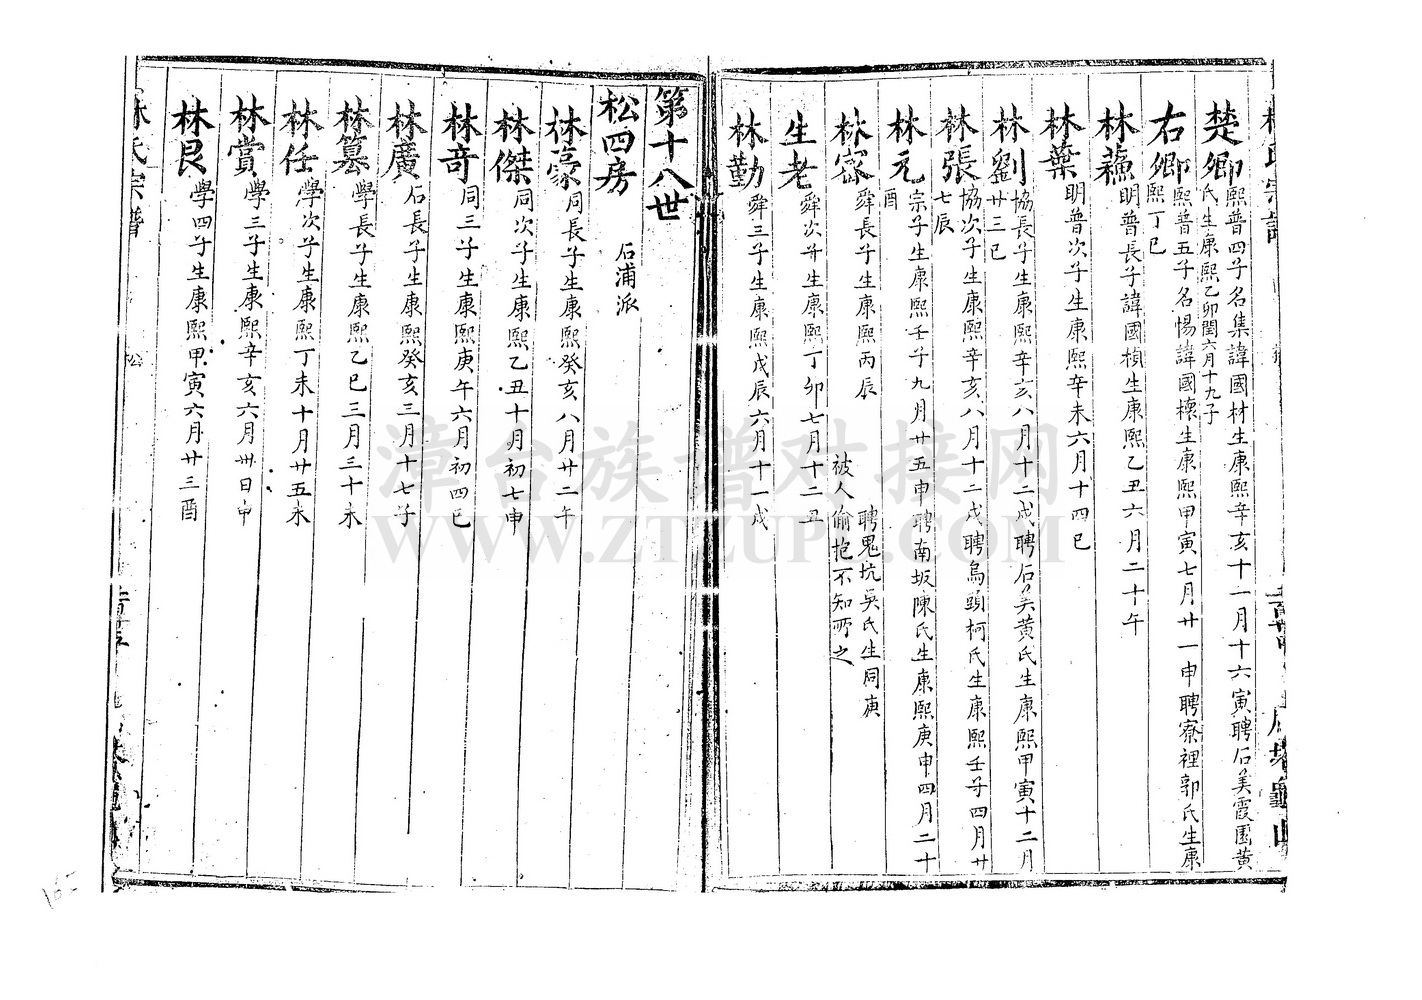 楚卿 熙普四子名集諱國材生康熙辛亥十一月十六寅聘石美霞園黃
氏生康熙乙卯閏六月十九子
右卿 熙普五子名惕諱國櫰生康熙甲寅七月廿一申聘寮裡郭氏生康
熙丁巳
林蘓 明普長子諱國楨生康熙乙丑六月二十午
林葉 明普次子生康熙辛未六月十四巳
林劉 協長子生康熙辛亥八月十二戌聘石美黃氏生康熙甲寅十二月
廿三巳
林張 協次子生康熙辛亥八月十二戌聘烏頭柯氏生康熙壬子四月廿
七辰
林元 宗子生康熙壬子九月廿五申聘南坂陳氏生康熙庚申四月二十
酉
林密 舜長子生康熙丙辰 聘鬼坑吳氏生同庚
被人偷抱不知所之
生老 舜次子生康熙丁卯七月十二丑
林勤 舜三子生康熙戊辰六月十一戌
第十八世
松四房 石浦派
林豪 同長子生康熙癸亥八月廿二午
林傑 同次子生康熙乙丑十月初七申
林奇 同三子生康熙庚午六月初四巳
林廣 石長子生康熙癸亥三月十七子
林纂 學長子生康熙乙巳三月三十未
林任 學次子生康熙丁未十月廿五未
林賞 學三子生康熙辛亥六月卅日申
林艮 學四子生康熙甲寅六月廿三酉
林氏宗譜 松
漳台族谱对接网
WWW.ZTZUPU.COM
165